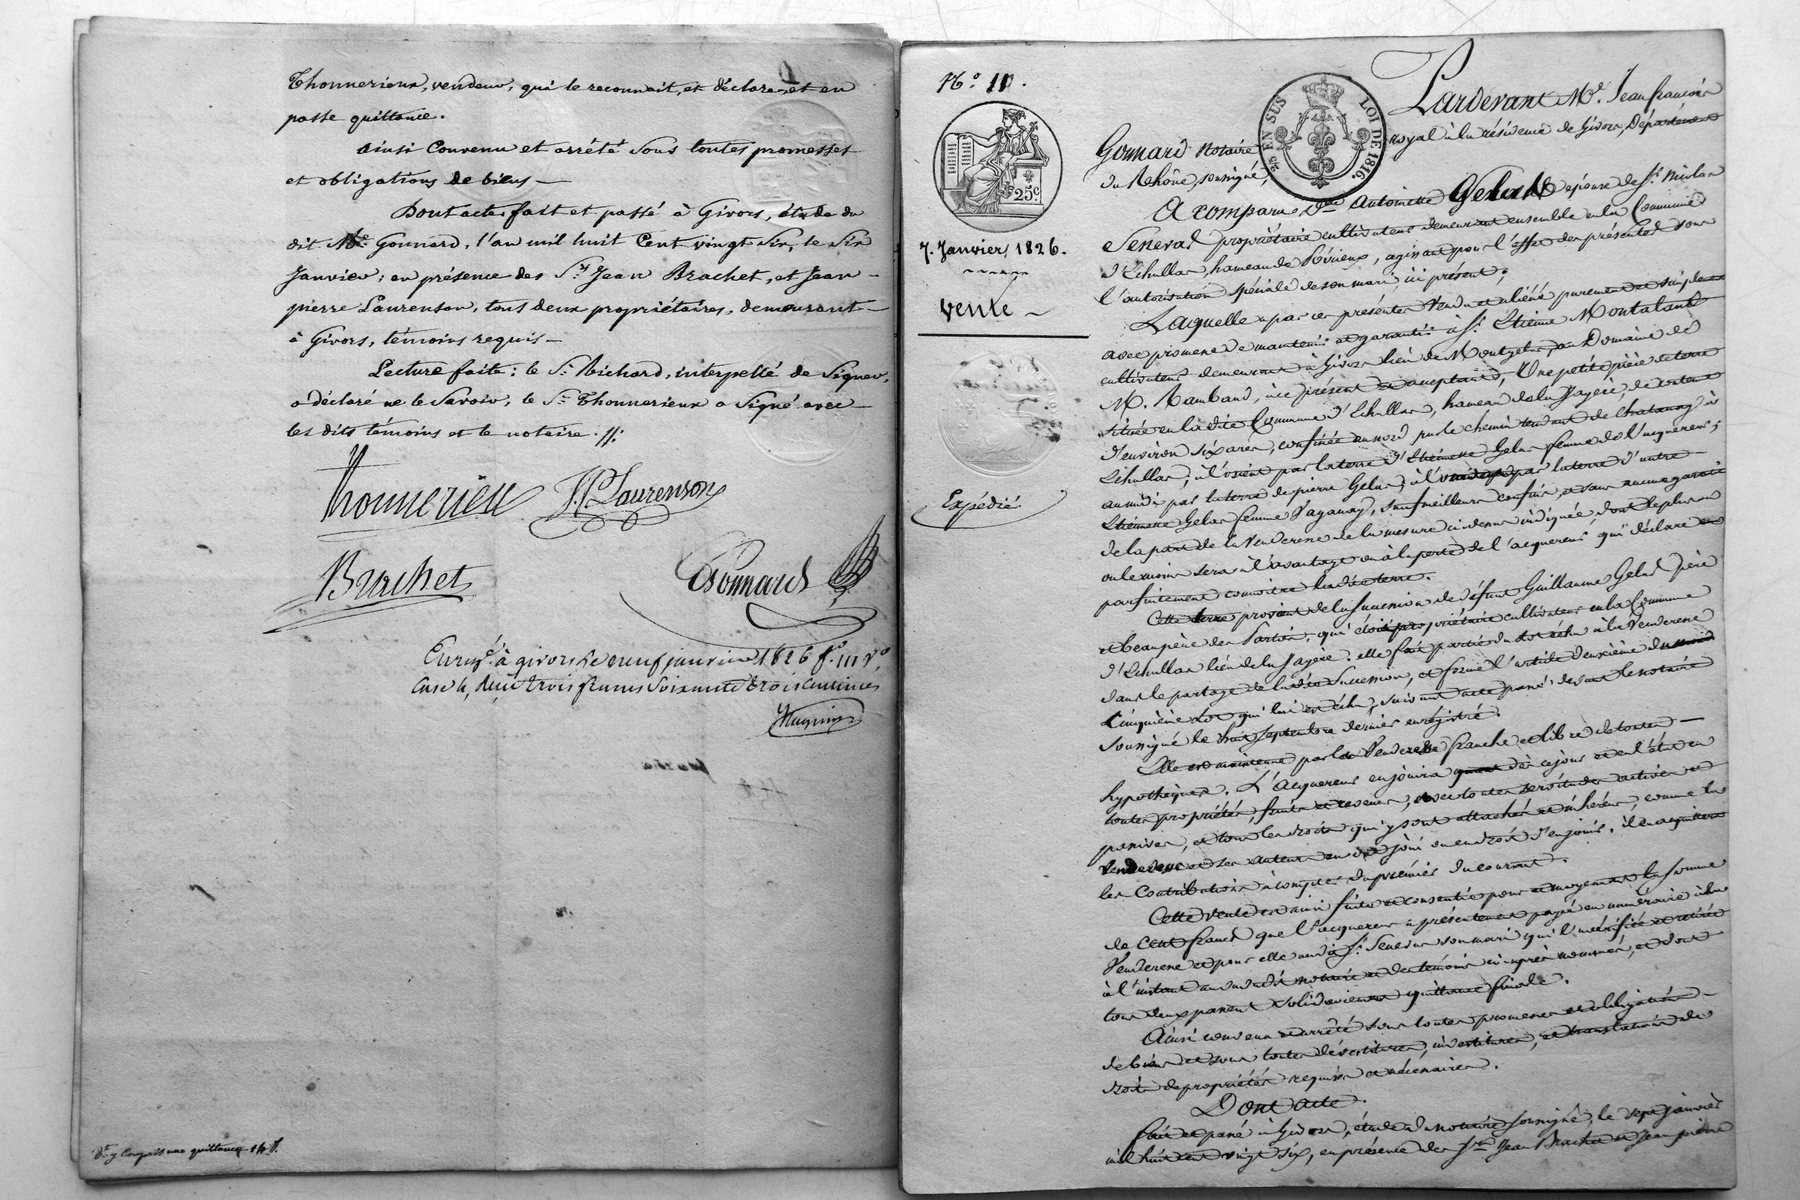 Thonnerieux, vendeur, qui le reconnait, et déclare, et en
passe quittance.
Ainsi Convenu et arrêté sous toutes promesses
et obligations de biens —
Dont acte, fait et passé à Givors, étude du
dit Me. Gonnard, l'an mil huit Cent vingt Six, le Six
Janvier; en présence des Srs. Jean Brachet, et Jean-
pierre Laurenson, tous deux propriétaires, demeurant —
à Givors, témoins requis —
Lecture faite: le Sr. Richard, interpellé de Signer,
a déclaré ne le Savoir, le Sr. Thonnerieux a Signé avec
les dits témoins et le notaire ./:
Thonnerieu J. P. Laurenson
Brachet Gonnard
Enrgé. à givors le neuf janvier 1826 fo. 111 vo.
Case 4, Reçu trois francs Soixante trois centimes
quittance
No. 11.
25 EN SUS LOI DE 1816.
25c
7. Janvier 1826.
Vente —
Expédié
Pardevant Me. Jean françois
Gonnard Notaire Royal à la résidence de Givors, Département
du Rhône soussigné,
A comparu De. Antoinette Gelas épouse de Sr. Nicolas
Seneval propriétaire cultivateur demeurant ensemble en la Commune
d'Echallas, hameau de , agissant pour l'effet des présentes sous
l'autorisation spéciale de son mari ici présent;
Laquelle a par ces présentes Vendu et aliéné purement et simplement
avec promesse de maintenir et garantir à Sr. Etienne Montalant
cultivateur demeurant à Givors lieu de Montgelas, au Domaine de
M. Rambaud, ici présent et acceptant, Une petite pièce de terre
située en la dite Commune d'Echallas, hameau de la Jayère, de contenue
d'environ six ares, confinée au nord par le chemin tendant de Chatanay à
Echallas, à l'orient par la terre d'Etiennette Gelas femme de l'acquereur,
au midi par la terre de pierre Gelas, à l' par la terre d'autre
Etiennette Gelas femme Paganay, sauf meilleurs confins, et sans aucune garantie
de la part de la Venderesse de la mesure ci-dessus indiquée dont le plus ou
ou le moins sera à l'avantage ou à la perte de l'acquereur qui déclare
parfaitement connoitre la dite terre.
Cette terre provient de la succession de défunt Guillaume Gelas père
et beaupère des Parties, qui étoit propriétaire cultivateur en la Commune
d'Echallas lieu de la Jayère. elle fait partie du lot échu à la Venderesse
dans le partage de la dite Succession, et forme l'article deuxième du
Cinquième Lot qui lui est échu, suivant acte passé devant le notaire
soussigné le huit septembre dernier enregistré.
Elle est maintenue par la Venderesse franche et libre de toutes —
hypothèques. L'acquereur en jouira dès ce jour et en l'état en
toute propriété, fruits et revenus, avec toutes servitudes actives et
passives, et tous les droits qui y sont attachés et inhérens, comme la
Venderesse et ses auteurs en ont joui ou eu droit d'en jouir. il en acquittera
les Contributions à compter du premier du courant.
Cette vente est ainsi faite et consentie pour et moyennant la somme
de Cent francs que l'acquereur a présentement payée en numéraire à la
Venderesse et pour elle audit Sr. Seneval son mari qui l'a vérifiée et retirée
à l'instant au vu du dit notaire et des témoins ci-après nommés, et dont
tous deux passent solidairement quittance finale.
Ainsi convenu et arrêté sous toutes promesses et obligations —
de biens et sous toutes dévestitures, investitures, et translations de
droits de propriétés requises et nécessaires.
Dont acte.
fait et passé à Givors, étude du Notaire soussigné, le sept janvier
mil huit cent vingt six, en présence des Srs. Jean Brachet et Jean pierre